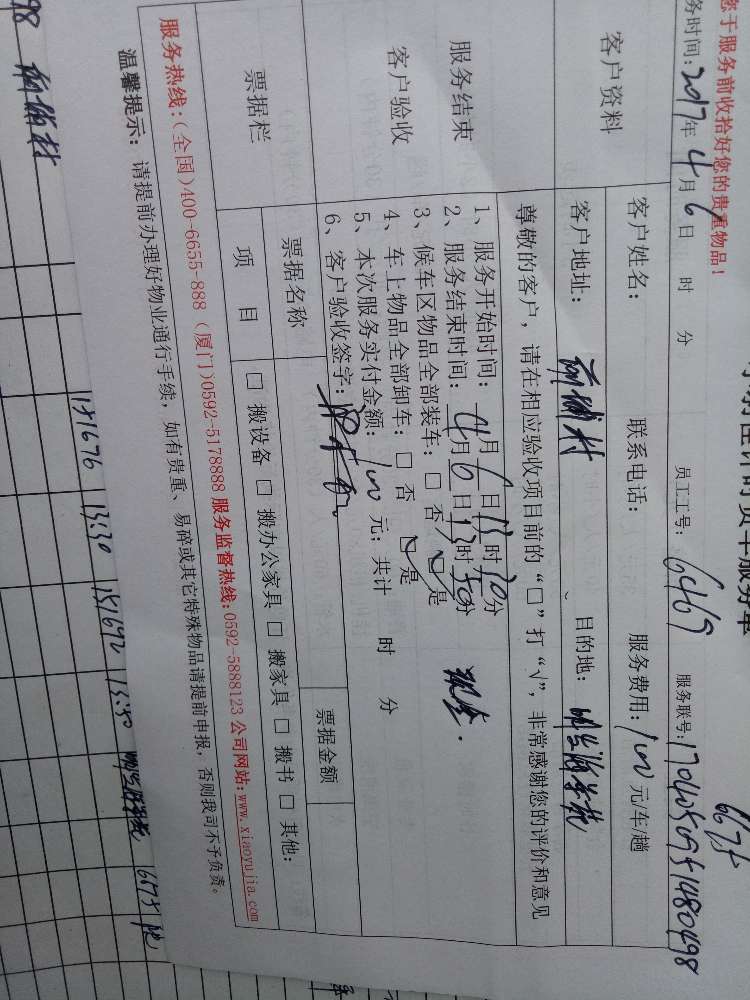 您于服务前收拾好您的贵重物品!
务时间: 2017年 4月 6日 时 分 员工工号: 6469 服务联号: 1704050951480498
6675
客户资料
客户姓名: 联系电话: 服务费用: 100 元/车/趟
客户地址: 目的地:
尊敬的客户，请在相应验收项目前的“□”打“√”，非常感谢您的评价和意见
服务结束
客户验收
1、服务开始时间: 4月6日13时30分
2、服务结束时间: 4月6日13时50分
3、候车区物品全部装车: □ 否 ☑ 是
4、车上物品全部卸车: □ 否 ☑ 是
5、本次服务实付金额: 100 元; 共计 时 分
6、客户验收签字:
现金.
票据栏
票据名称 票据金额
项 目 □ 搬设备 □ 搬办公家具 □ 搬家具 □ 搬书 □ 其他:
服务热线:(全国)400-6655-888 (厦门)0592-5178888 服务监督热线:0592-5888123 公司网站:www.xiaoyujia.com
温馨提示: 请提前办理好物业通行手续, 如有贵重、易碎或其它特殊物品请提前申报, 否则我司不予负责。
98
181676 13:30 181692 13:50 6675